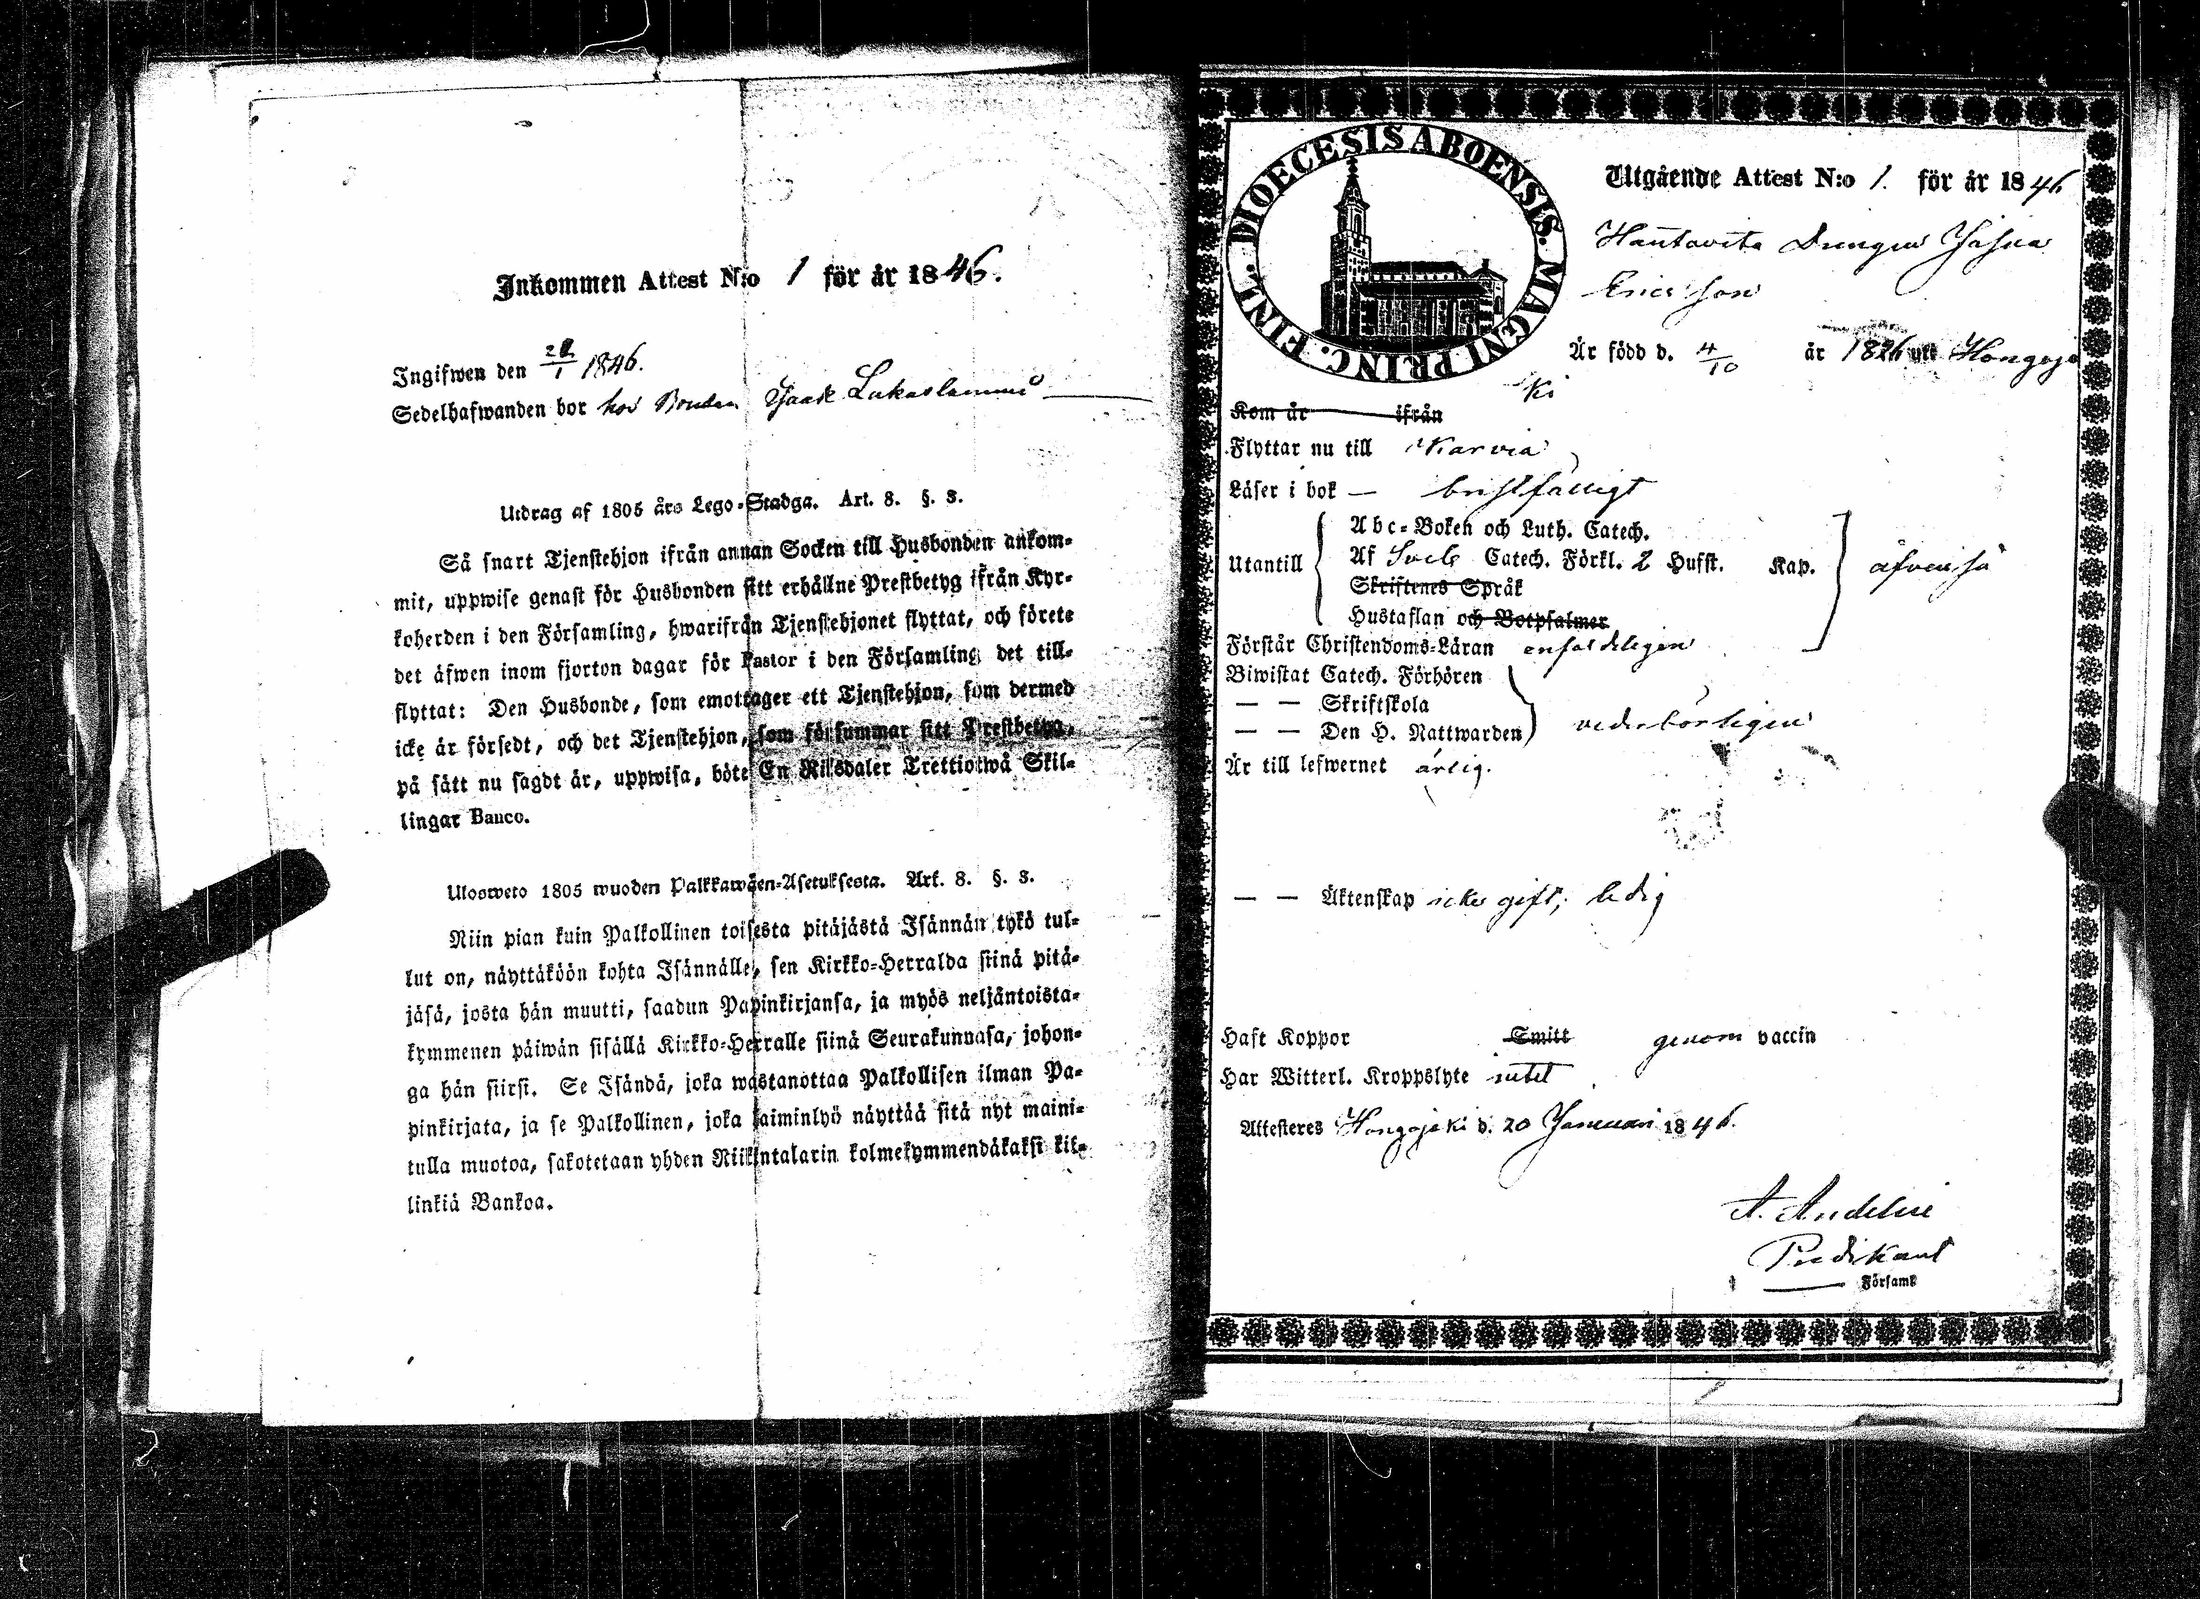 Inkommen Attest N:o 1 för år 1846.
Ingifwen den 1846.
Sedelhafwanden bor hos Bonden Isaak
Utdrag af 1805 års Lego-Stadga. Art. 8. §. 3.
Så snart Tjenstehjon ifrån annan Socken till Husbonden ankom-
mit, uppwise genast för Husbonden sitt erhållne Prestbetyg ifrån Kyr-
koherden i den Församling, hwarifrån Tjenstehjonet flyttat, och förete
det äfwen inom fjorton dagar för Pastor i den Församling det till-
flyttat: Den Husbonde, som emottager ett Tjenstehjon, som dermed
icke är försedt, och det Tjenstehjon, som försummar sitt Prestbetyg,
på sätt nu sagdt är, uppwisa, böte En Riksdaler Trettiotwå Skil-
lingar Banco.
Ulosweto 1805 wuoden Palkkawäen-Asetuksesta. Art. 8. §. 3.
Niin pian kuin Palkollinen toisesta pitäjästä Isännän tykö tul-
lut on, näyttäköön kohta Isännälle, sen Kirkko-Herralda siinä pitä-
jäsä, josta hän muutti, saadun Papinkirjansa, ja myös neljäntoista-
kymmenen päiwän sisällä Kirkko-Herralle siinä Seurakunnasa, johon-
ga hän siirsi. Se Isändä, joka wastanottaa Palkollisen ilman Pa-
pinkirjata, ja se Palkollinen, joka laiminlyö näyttää sitä nyt maini-
tulla muotoa, sakotetaan yhden Riikintalarin kolmekymmendäkaksi kil-
linkiä Bankoa.
DIOECESIS ABOENSIS. MAGNI PRINC. FINL.
Utgående Attest N:o 1. för år 1846
Drengen
Ericsson
Är född d. 4/10 år 1826 uti Hongojo
ki
Kom år ifrån
Flyttar nu till Karvia
Läser i bok — bristfälligt
Utantill
Abc-Boken och Luth. Catech.
Af Sveb. Catech. Förkl. 2 Hufst. Kap. äfvenså
Skriftenes Språk
Hustaflan och Botpsalmer
Förstår Christendoms-Läran enfaldeligen
Biwistat Catech. Förhören
— — Skriftskola
— — Den H. Nattwarden vederbörligen
Är till lefwernet ärlig.
— — Äktenskap icke gift, ledig
Haft Koppor Smitt genom vaccin
Har Witterl. Kroppslyte intet
Attesteres Hongojoki d. 20 Januari 1846.
A.
Predikant
Församl